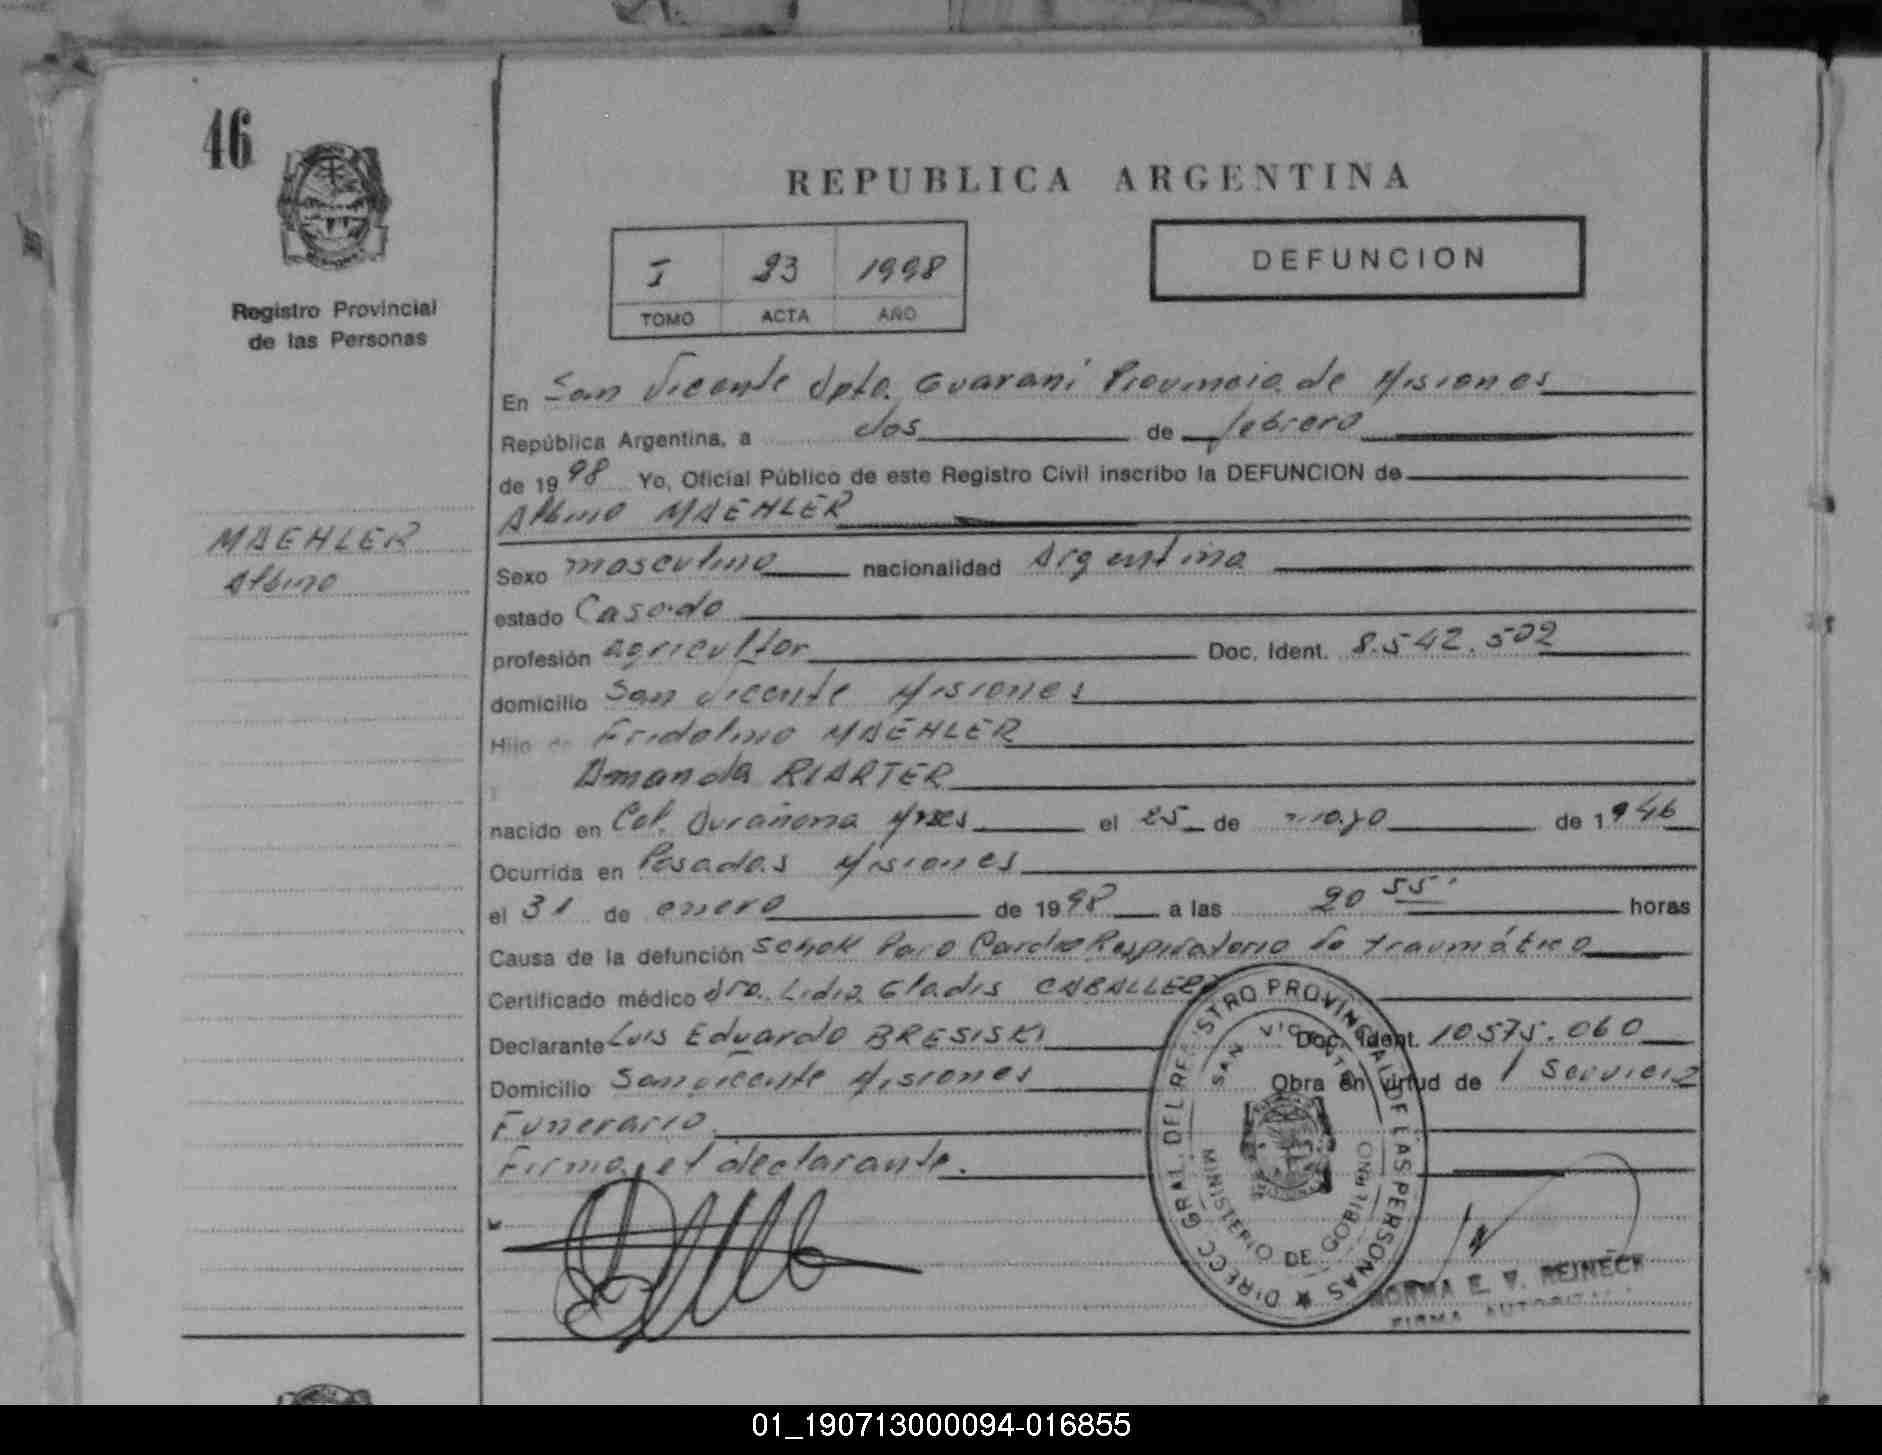 46
REPUBLICA ARGENTINA
I 23 1998
TOMO ACTA AÑO
DEFUNCION
Registro Provincial
de las Personas
MAEHLER
Albino
En San Vicente Dpto. Guaraní Provincia de Misiones
República Argentina, a dos de febrero
de 1998 Yo, Oficial Público de este Registro Civil inscribo la DEFUNCION de
Albino MAEHLER
Sexo masculino nacionalidad Argentina
estado Casado
profesión agricultor Doc. Ident. 8.542.502
domicilio San Vicente Misiones
Hijo de Fridolino MAEHLER
Amanda RIARTER
nacido en Col. Durañona Mnes el 25 de mayo de 1946
Ocurrida en Posadas Misiones
el 31 de enero de 1998 a las 20 55' horas
Causa de la defunción Schok Paro CardioRespiratorio traumático
Certificado médico dra. Lidia Gladis CABALLERO
Declarante Luis Eduardo BRESISKI Doc. Ident. 10575.060
Domicilio San vicente Misiones Obra en virtud de / Servicio
Funerario.
Firma, el declarante.
DIRECC GRAL. DEL REGISTRO PROVINCIAL DE LAS PERSONAS
SAN VICENTE
MINISTERIO DE GOBIERNO
NORMA E. V. REINECK
FIRMA AUTORIZADA
01_190713000094-016855